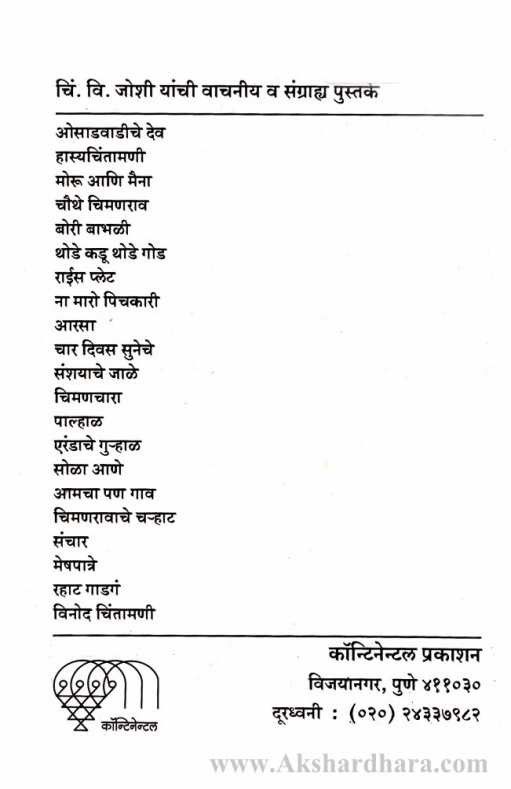 चिं. वि. जोशी यांची वाचनीय व संग्राह्य पुस्तके
ओसाडवाडीचे देव
हास्यचिंतामणी
मोरू आणि मैना
चौथे चिमणराव
बोरी बाभळी
थोडे कडू थोडे गोड
राईस प्लेट
ना मारो पिचकारी
आरसा
चार दिवस सुनेचे
संशयाचे जाळे
चिमणचारा
पाल्हाळ
एरंडाचे गुऱ्हाळ
सोळा आणे
आमचा पण गाव
चिमणरावाचे चऱ्हाट
संचार
मेषपात्रे
रहाट गाडगं
विनोद चिंतामणी
कॉन्टिनेन्टल प्रकाशन
विजयानगर, पुणे ४११०३०
दूरध्वनी : (०२०) २४३३७९८२
कॉन्टिनेन्टल
www.Akshardhara.com